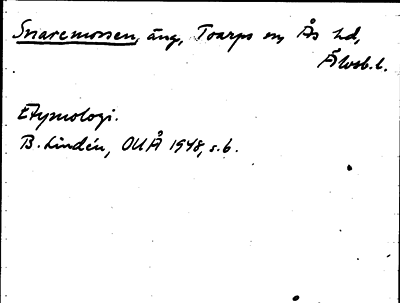 Snaremossen, äng, Toarps sn, Ås hd,
Älvsb.l.
Etymologi.
B. Lindén, OUÅ 1948, s. 6.